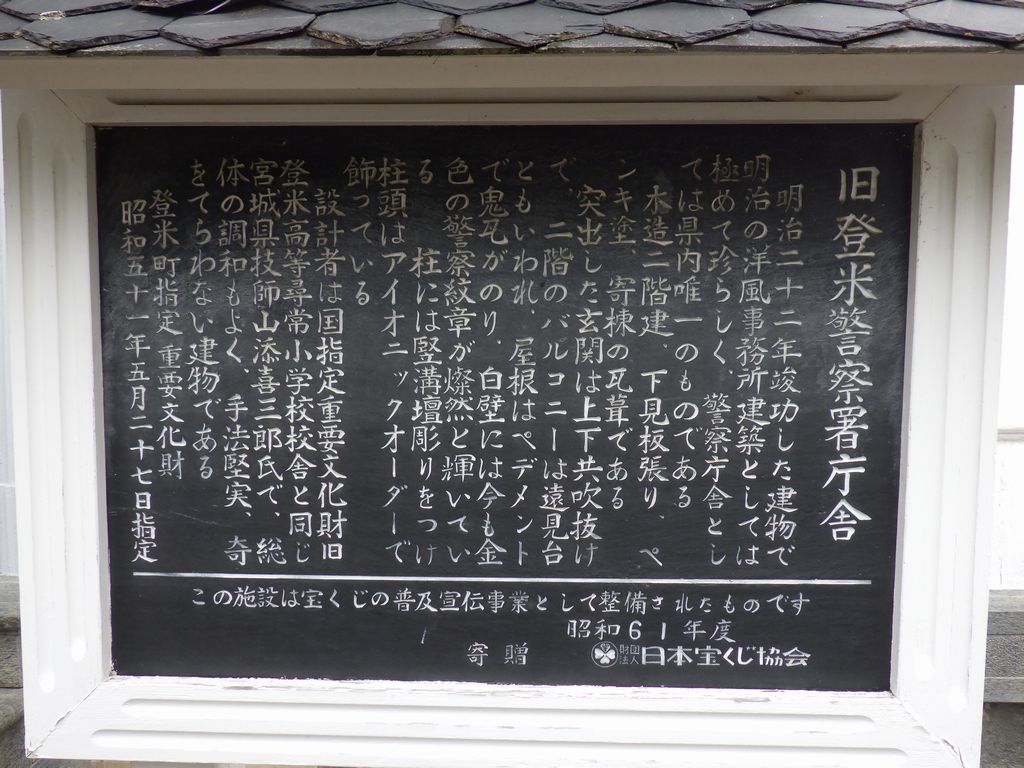 旧登米警察署庁舎
明治二十二年竣功した建物で
明治の洋風事務所建築としては
極めて珍らしく、警察庁舎とし
ては県内唯一のものである
木造二階建、下見板張り、ペ
ンキ塗、寄棟の瓦葺である
突出した玄関は上下共吹抜け
で、二階のバルコニーは遠見台
ともいわれ、屋根はペデメント
で鬼瓦がのり、白壁には今も金
色の警察紋章が燦然と輝いてい
る　柱には竪溝壇彫りをつけ
柱頭はアイオニックオーダーで
飾っている
設計者は国指定重要文化財旧
登米高等尋常小学校校舎と同じ
宮城県技師山添喜三郎氏で、総
体の調和もよく、手法堅実、奇
をてらわない建物である
登米町指定　重要文化財
昭和五十一年五月二十七日指定
この施設は宝くじの普及宣伝事業として整備されたものです
昭和61年度
寄贈 財団法人 日本宝くじ協会